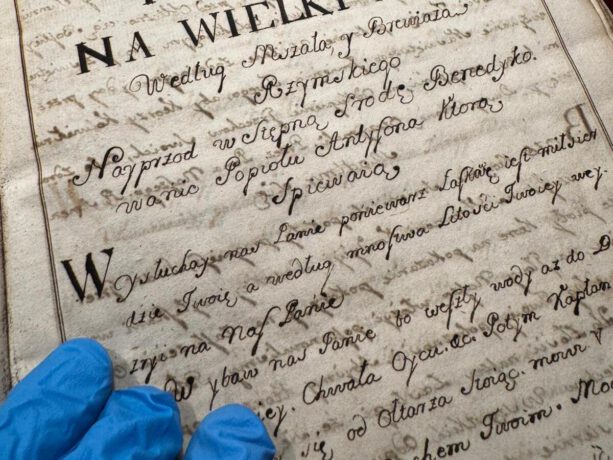 NA WIELKI
Według Mszału, y Brewiarza
Rzymskiego
Nayprzod w Stępną Srodę Benedyko-
wanie Popiołu Antyfona Ktorą
Spiewaią
Wysłuchay nas Panie poniewarz Łaskawe iest miłosier
dzie Twoie a według mnostwa Litości Twoiey wey-
rzyi na Nas Panie
Wybaw nas Panie bo weszły wody aż do D
iey. Chwała Oycu. &c. Potym Kapłan
się od Ołtarza Stoiąc. mowi y
chem Twoim. Mo